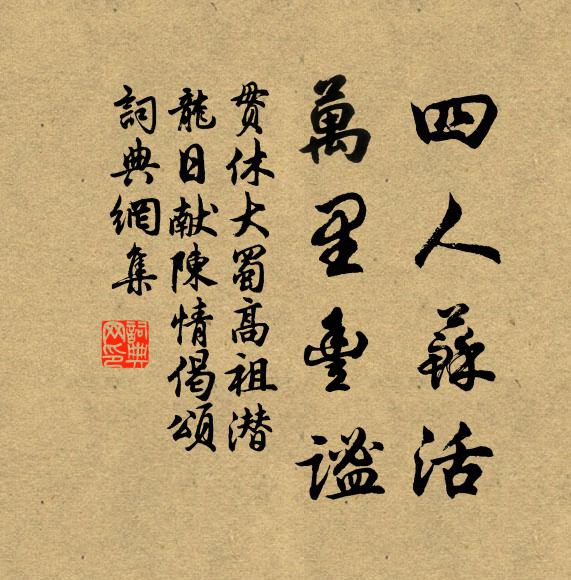 四人蘇活
萬里豊謐
貫休大蜀高祖潜
龍日献陳情偈頌
詞典網集
詞典网印